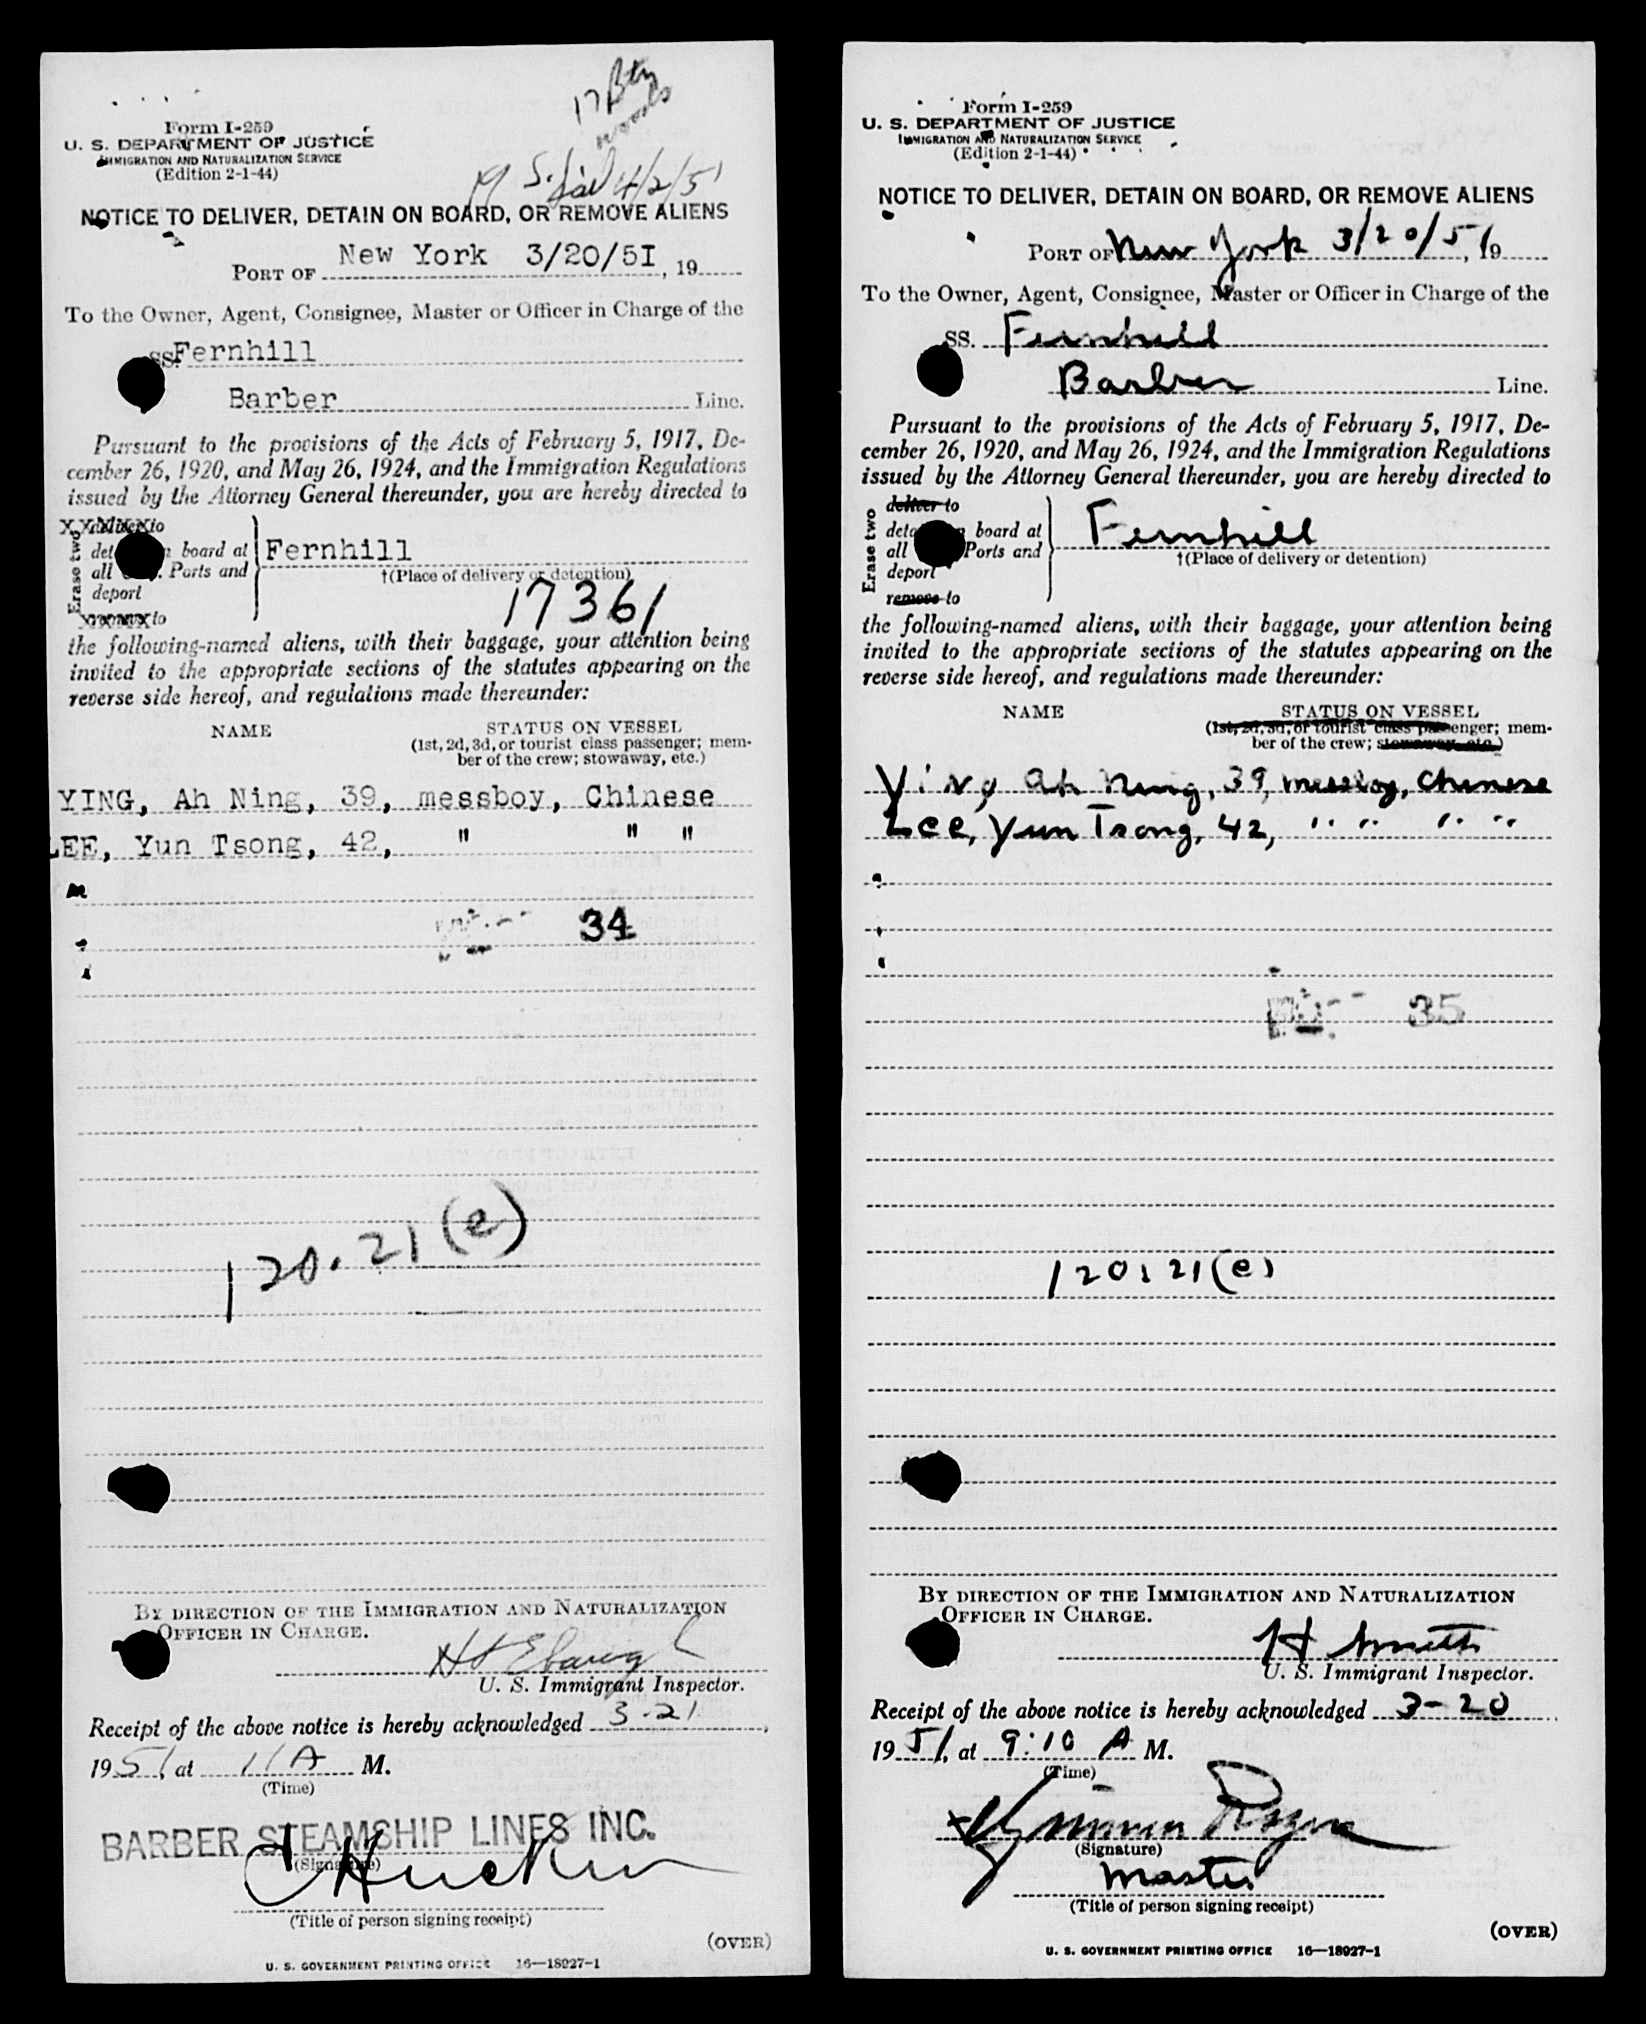 17 Bty
S. Sail 4/2/51
Form I-259
U. S. DEPARTMENT OF JUSTICE
IMMIGRATION AND NATURALIZATION SERVICE
(Edition 2-1-44)
NOTICE TO DELIVER, DETAIN ON BOARD, OR REMOVE ALIENS
PORT OF New York 3/20/51, 19
To the Owner, Agent, Consignee, Master or Officer in Charge of the
SS. Fernhill
Barber Line.
Pursuant to the provisions of the Acts of February 5, 1917, De-
cember 26, 1920, and May 26, 1924, and the Immigration Regulations
issued by the Attorney General thereunder, you are hereby directed to
Erase two
deliver to
board at
all Ports and
deport
remove to
Fernhill
†(Place of delivery or detention)
17361
the following-named aliens, with their baggage, your attention being
invited to the appropriate sections of the statutes appearing on the
reverse side hereof, and regulations made thereunder:
NAME STATUS ON VESSEL
(1st, 2d, 3d, or tourist class passenger; mem-
ber of the crew; stowaway, etc.)
YING, Ah Ning, 39, messboy, Chinese
LEE, Yun Tsong, 42, " " "
34
120.21(e)
BY DIRECTION OF THE IMMIGRATION AND NATURALIZATION
OFFICER IN CHARGE.
U. S. Immigrant Inspector.
Receipt of the above notice is hereby acknowledged 3-21,
1951, at 11 A M.
(Time)
BARBER STEAMSHIP LINES INC.
(Signature)
(Title of person signing receipt)
(OVER)
U. S. GOVERNMENT PRINTING OFFICE 16—18927-1
Form I-259
U. S. DEPARTMENT OF JUSTICE
IMMIGRATION AND NATURALIZATION SERVICE
(Edition 2-1-44)
NOTICE TO DELIVER, DETAIN ON BOARD, OR REMOVE ALIENS
PORT OF New York 3/20/51, 19
To the Owner, Agent, Consignee, Master or Officer in Charge of the
SS. Fernhill
Barber Line.
Pursuant to the provisions of the Acts of February 5, 1917, De-
cember 26, 1920, and May 26, 1924, and the Immigration Regulations
issued by the Attorney General thereunder, you are hereby directed to
Erase two
deliver to
board at
all Ports and
deport
remove to
Fernhill
†(Place of delivery or detention)
the following-named aliens, with their baggage, your attention being
invited to the appropriate sections of the statutes appearing on the
reverse side hereof, and regulations made thereunder:
NAME STATUS ON VESSEL
(1st, 2d, 3d, or tourist class passenger; mem-
ber of the crew; stowaway, etc.)
Ying Ah Ning, 39, messboy, Chinese
Lee, Yun Tsong, 42, " " " "
35
120.21(e)
BY DIRECTION OF THE IMMIGRATION AND NATURALIZATION
OFFICER IN CHARGE.
H Smith
U. S. Immigrant Inspector.
Receipt of the above notice is hereby acknowledged 3-20
1951, at 9:10 A M.
(Time)
(Signature)
Master
(Title of person signing receipt)
(OVER)
U. S. GOVERNMENT PRINTING OFFICE 16—18927-1